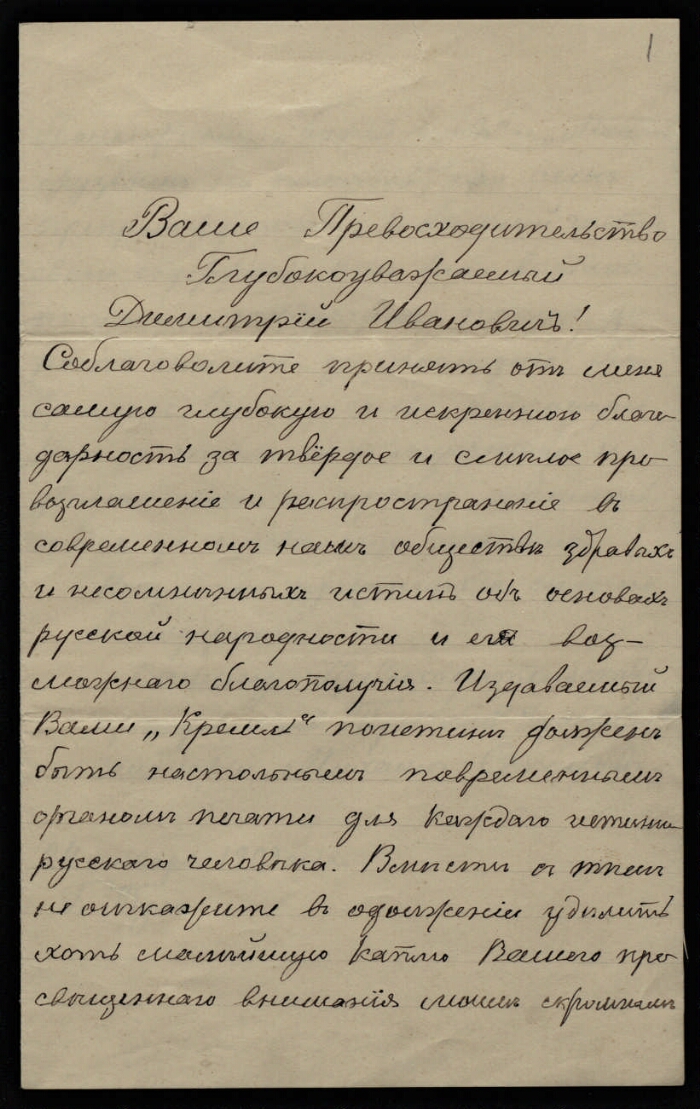 1
Ваше Превосходительство
Глубокоуважаемый
Димитрій Ивановичъ!
Соблаговолите принять отъ меня
самую глубокую и искреннюю благо-
дарность за твёрдое и смѣлое про-
возглашеніе и распространеніе въ
современномъ намъ обществѣ здравыхъ
и несомнѣнныхъ истинъ объ основахъ
русской народности и ея воз-
можнаго благополучія. Издаваемый
Вами „Кремль“ поистинѣ долженъ
быть настольнымъ повременнымъ
органомъ печати для каждаго истинно
русскаго человѣка. Вмѣстѣ съ тѣмъ
не откажите въ одолженіи удѣлить
хоть малѣйшую каплю Вашего про-
свѣщеннаго вниманія моимъ скромнымъ